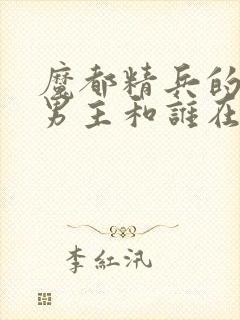 魔都精兵的
男主和誰在
李紅汛